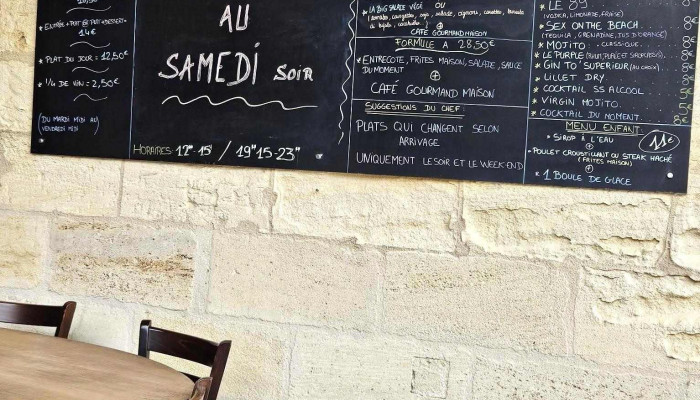 * ENTRÉE + PLAT OU PLAT + DESSERT
14€
* PLAT DU JOUR = 12,50€
* 1/4 DE VIN = 2,50€
(DU MARDI MIDI AU
VENDREDI MIDI)
AU
SAMEDI SOIR
HORAIRES 12H-15H / 19H15-23H
LA BIG SALADE VÉGÉ OU
CAFÉ GOURMAND MAISON
FORMULE A 28,50€
* ENTRECOTE, FRITES MAISON, SALADE, SAUCE
DU MOMENT
+
CAFÉ GOURMAND MAISON
SUGGESTIONS DU CHEF:
PLATS QUI CHANGENT SELON
ARRIVAGE
UNIQUEMENT LE SOIR ET LE WEEK-END
* LE 89
(VODKA, LIMONADE, FRAISE)
* SEX ON THE BEACH
(TEQUILA, GRENADINE, JUS D'ORANGE)
* MOJITO CLASSIQUE
* LE PURPLE
* GIN TO SUPERIEUR (AU CHOIX)
* LILLET DRY
* COCKTAIL SS ALCOOL
* VIRGIN MOJITO
* COCKTAIL DU MOMENT
MENU ENFANT 11€
* SIROP À L'EAU
+
* POULET CROUSTILLANT OU STEAK HACHÉ
(FRITES MAISON)
+
* 1 BOULE DE GLACE